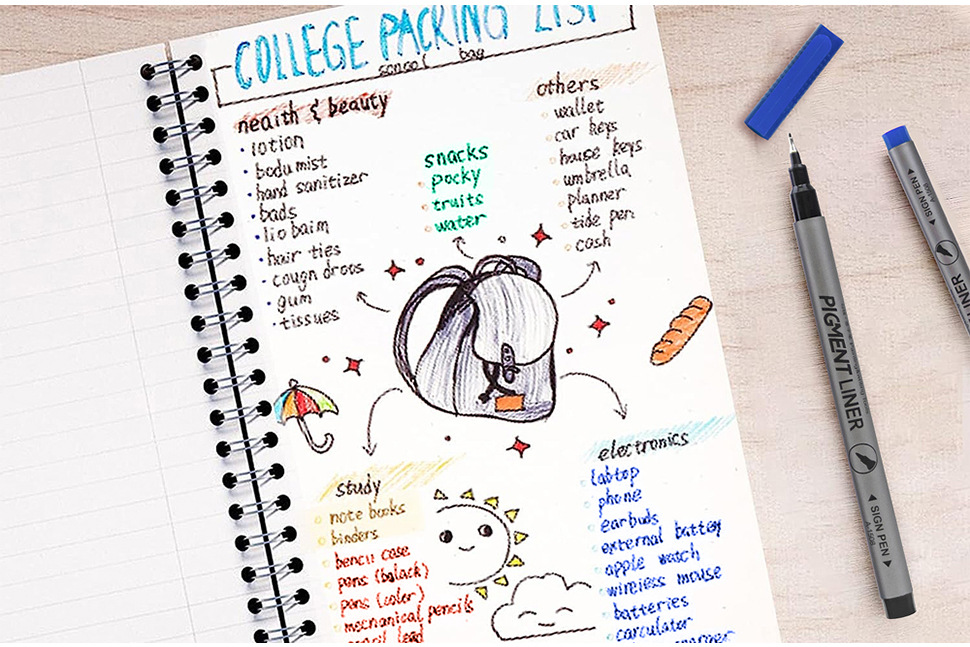 COLLEGE PACKING LIST
bag
health & beauty
lotion
body mist
hand sanitizer
bads
lio baim
hair ties
cougn droos
gum
tissues
snacks
pocky
truits
water
others
wallet
car keys
house keys
umbrella
planner
tide pen
cash
study
note books
binders
bencil case
pens (balack)
pens (color)
mechanical pencils
pencil lead
electronics
labtop
phone
earbuds
external battey
apple watch
wireless mouse
batteries
carculator
PIGMENT LINER
SIGN PEN
SIGN PEN
LINER